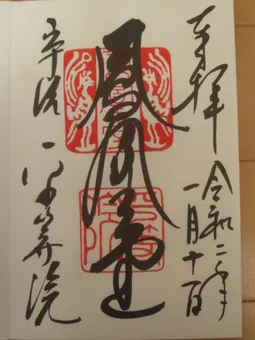 奉拝
令和二年
一月十一日
鳳凰堂
宇治 平等院